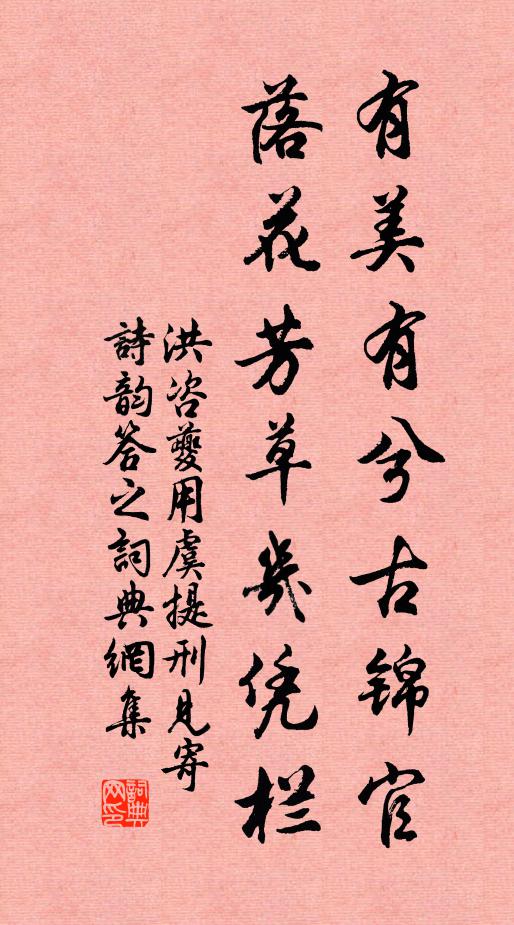 有美有兮古锦官
落花芳草几凭栏
洪咨夔用虞提刑见寄
詩韵答之詞典網集
詞典網印